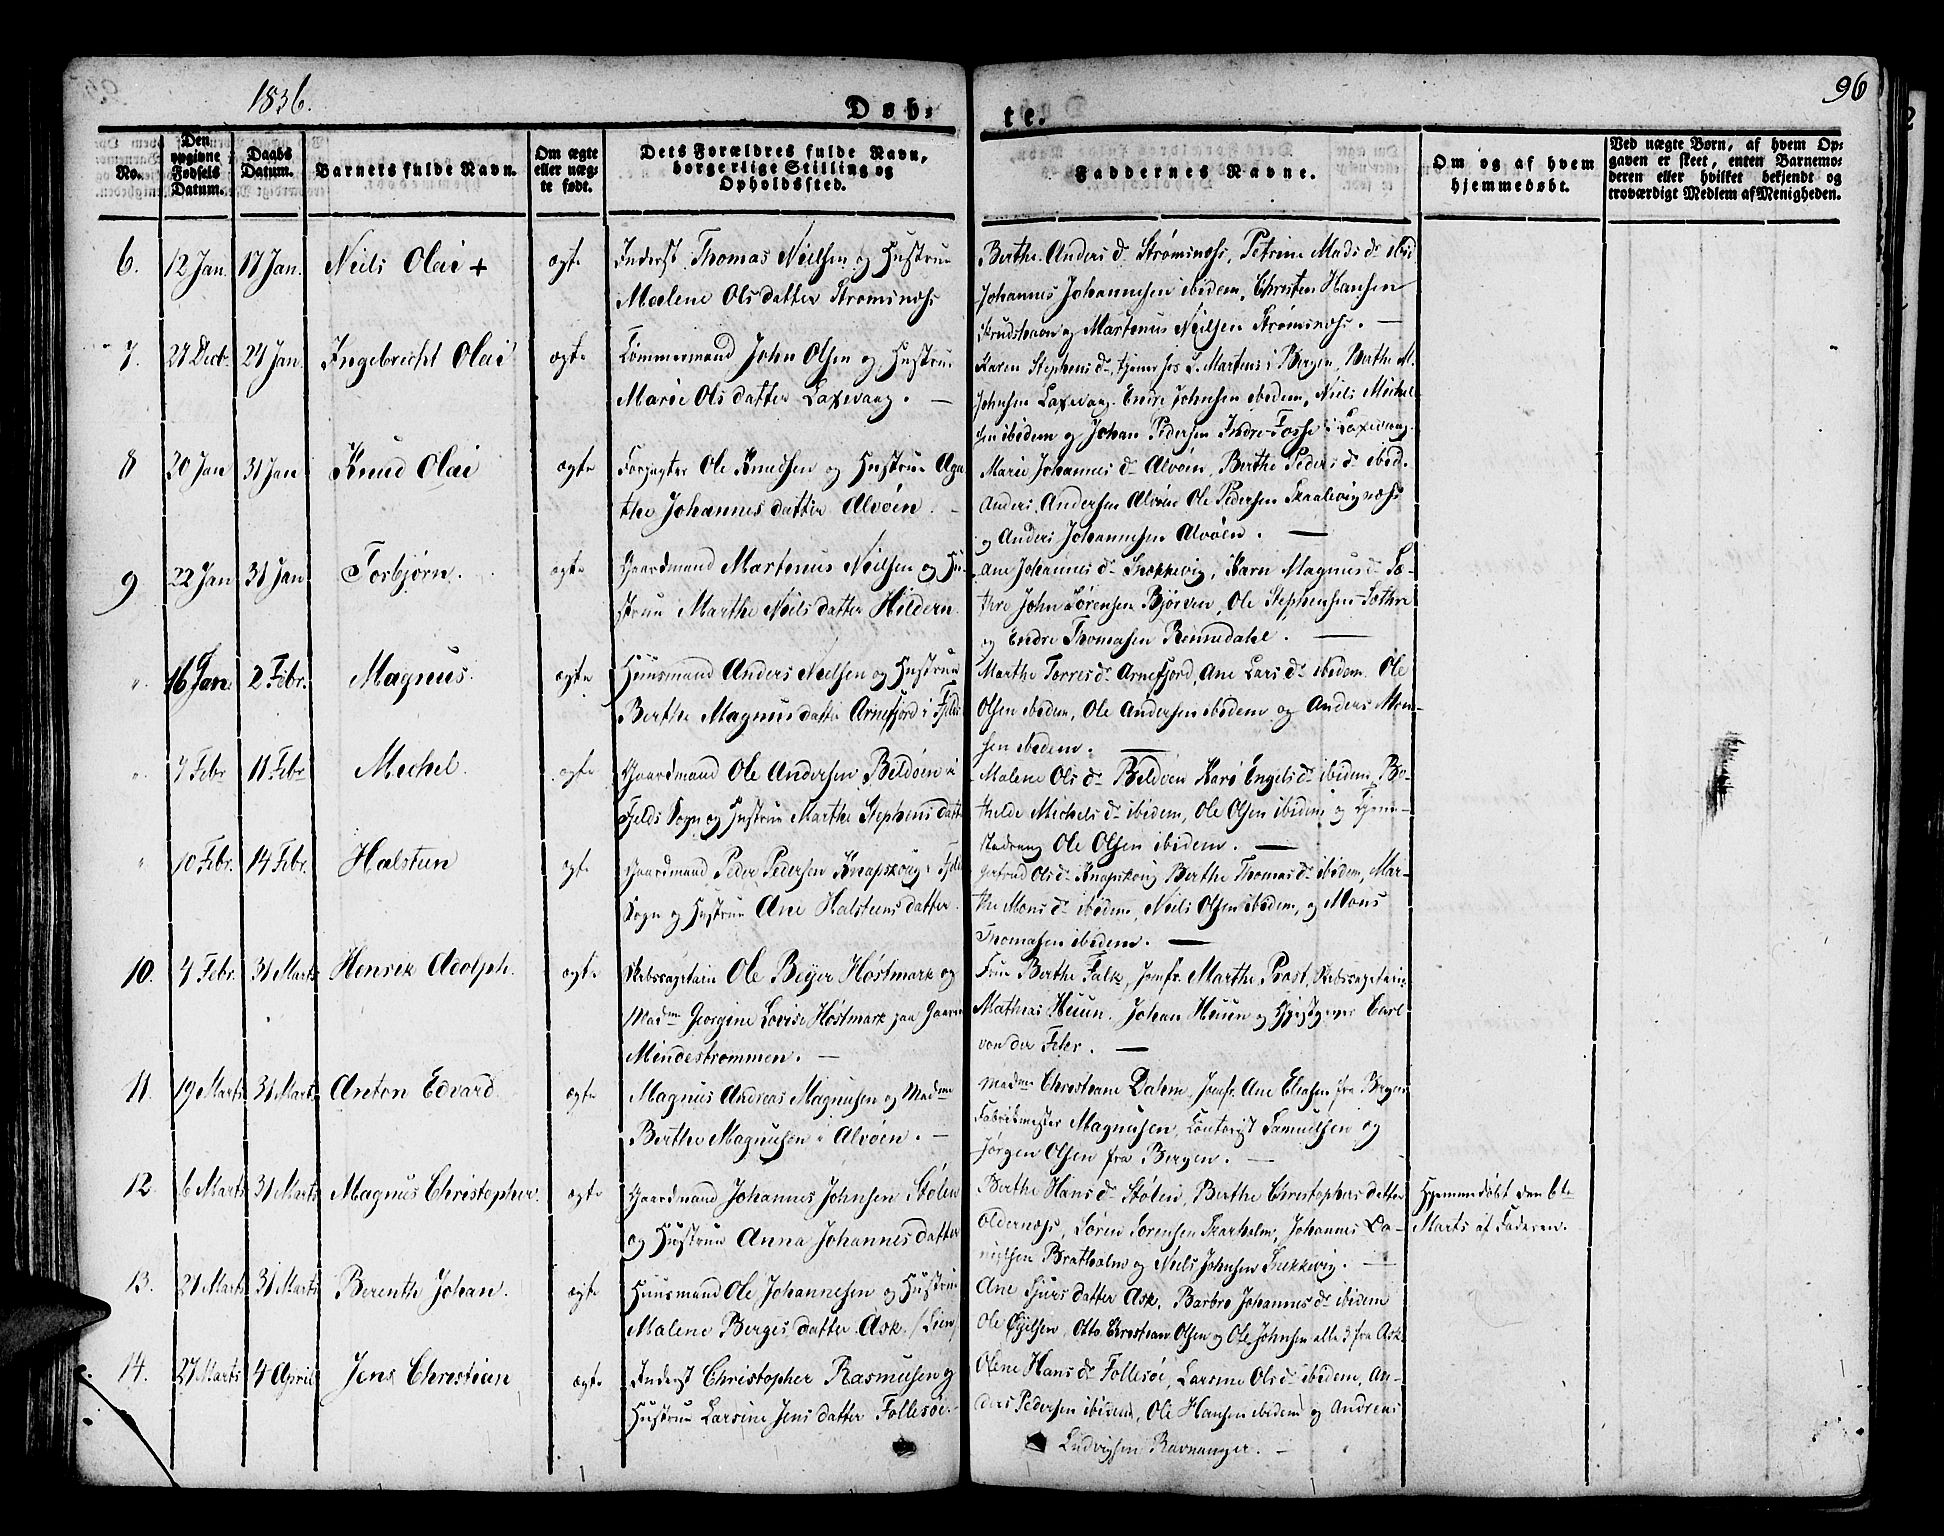 1836.
Døb-
te.
96
No.
Den opgivne Fødsels Datum.
Daabs Datum.
Barnets fulde Navn.
Om ægte eller uægte født.
Dets Forældres fulde Navn, borgerlige Stilling og Opholdssted.
Faddernes Navne.
Om og af hvem hjemmedøbt.
Ved uægte Børn, af hvem Opgaven er skeet, enten Barnemoderen eller hvilket bekjendt og troværdigt Medlem af Menigheden.
6. 12 Jan. 17 Jan. Niels Olai + ægte Inderst Thomas Nielsen og Hustrue
Malene Olsdatter Strømsnæs
Berthe Anders d. Strømsnæs, Petrine Mads d. ibid
Johannes Johannesen ibidem, Christen Hansen
Skudshavn og Martenus Nielsen Strømsnæs. —
7. 27 Decb. 24 Jan. Ingebrecht Olai ægte Tømmermand John Olsen og Hustrue
Marie Olsdatter Laxevaag. —
Karen Stephens d. tjener hos L. Martens i Bergen, Berthe M.
Johnsen Laxevaag. Endre Johnsen ibidem, Niels Michel-
sen ibidem og Johan Pedersen Indre-Fosse i Laxevaag.
8 20 Jan 31 Jan Knud Olai ægte Forpagter Ole Knudsen og Hustrue Aga
the Johannesdatter Alvøen. —
Marie Johannes d. Alvøen, Berthe Peders d. ibid.
Anders Andersen Alvøen Ole Pedersen Skaalevignæss
og Anders Johannesen Alvøen. —
9 22 Jan 31 Jan Torbjørn. ægte Gaardmand Martenus Nielsen og Hu-
strue Marthe Nielsdatter Hildern.
Ane Johannes d. Snekkevig, Karn Magnus d. Sæ-
thre John Sørensen Bjørøen, Ole Stephensen Sæthre
og Endre Thomasen Rennedahl. —
" 16 Jan. 2 Febr. Magnus. ægte Huusmand Anders Nielsen og Hustrue
Berthe Magnusdatter Arnefjord i Fjeld
Marthe Torres d. Arnefjord, Ane Lars d. ibidem. Ole
Olsen ibidem, Ole Andersen ibidem og Anders Mon-
sen ibidem. —
" 7 Febr 11 Febr Michel. ægte Gaardmand Ole Andersen Bildøen i
Fjelds Sogn og Hustrue Marthe Stephensdatter
Malene Ols d. Bildøen Kari Engels d. ibidem, Bo-
thilde Michels d. ibidem, Ole Olsen ibidem og Tjene-
stedreng Ole Olsen ibidem. —
" 10 Febr. 14 Febr. Halsteen ægte Gaardmand Peder Pedersen Knapskoug i Fjeld
Sogn og Hustrue Ane Halsteensdatter.
Gertrud Ols d. Knapskoug Berthe Thomas d. ibidem, Mar-
the Mons d. ibidem, Niels Olsen ibidem, og Mons
Thomasen ibidem. —
10. 4 Febr. 31 Marts Henrik Adolph. ægte Skibscapitain Ole Beyer Høstmark og
Mad.m Georgine Lovise Høstmark paa Gaarden
Mindestrømmen. —
Frue Berthe Falk, Jomfr. Marthe Prost, Skibscapitain
Mathias Heiun. Johan Heiun og Gjestgiver Carl
von der Fehr. —
11. 19 Marts 31 Marts Anton Edvard ægte Magnus Andreas Magnusen og Mad.m
Berthe Magnusen i Alvøen. —
Mad.m Christiane Dahm, Jomfr. Ane Eliasen fra Bergen
Fabrikmester Magnusen, Contorist Samuelsen og
Jørgen Olsen fra Bergen. —
12. 6 Marts 31 Marts Magnus Christopher. ægte Gaardmand Johannes Johnsen Stølen
og Hustrue Anna Johannesdatter
Berthe Hans d. Stølen, Berthe Christophersdatter
Oldernæss, Søren Sørensen Skarholm, Johannes Da-
nielsen Bratholm og Niels Johnsen Snekkevig. —
Hjemmedøbt den 6te
Marts af Faderen.
13. 21 Marts 31 Marts Berenth Johan. ægte Huusmand Ole Johannesen og Hustrue
Malene Bergesdatter Ask. (Lien)
Ane Sjursdatter Ask. Barbro Johannes d. ibidem
Ole Egilsen, Otto Christian Olsen og Ole Johnsen alle 3 fra Ask
14. 27 Marts 4 April Jens Christian ægte Inderst Christopher Rasmusen og
Hustrue Larsine Jensdatter Follesøe. —
Olene Hans d. Follesøe, Larsine Ols d. ibidem, An-
ders Pedersen ibidem, Ole Hansen ibidem og Andreas
Ludvigsen Ravnanger. —